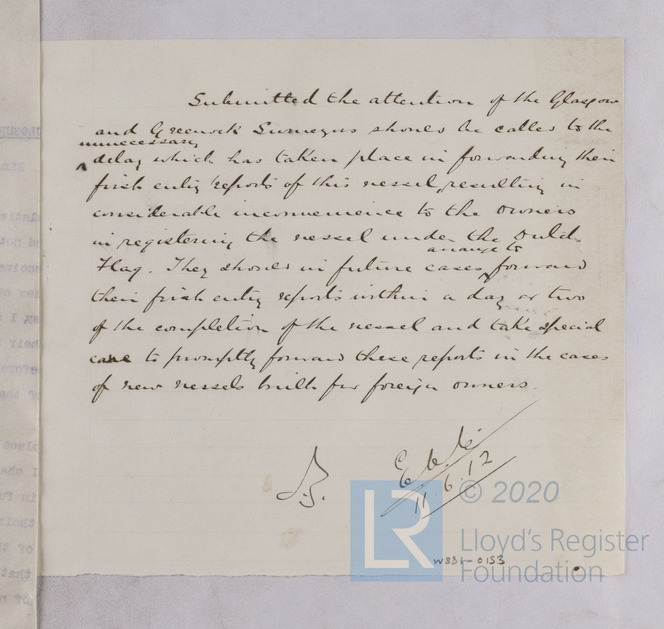 Submitted the attention of the Glasgow
and Greenock Surveyors should be called to the
unnecessary
^ delay which has taken place in forwarding their
first entry reports of this vessel, resulting in
considerable inconvenience to the owners
in registering the vessel under the Dutch
arrange to
Flag. They should in future cases ^ forward
their first entry reports within a day or two
of the completion of the vessel and take special
care to promptly forward these reports in the cases
of new vessels built for foreign owners.
11.6.12
© 2020
LR
Lloyd's Register
Foundation
W331-0153